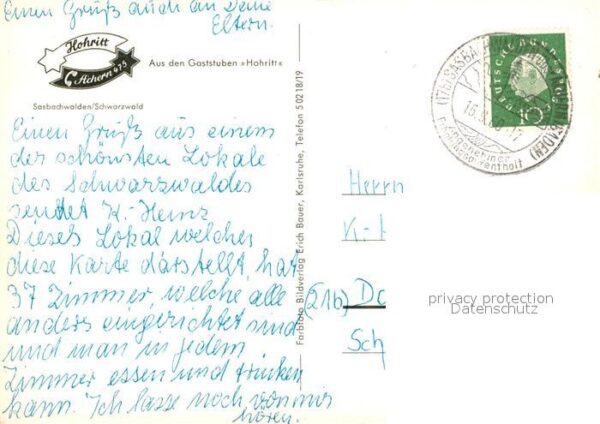 Einen Gruß auch an Deine
Eltern.
Hohritt
Achern 475
Aus den Gaststuben »Hohritt«
Sasbachwalden/Schwarzwald
Einen Gruß aus einem
der schönsten Lokale
des Schwarzwaldes
sendet K.-Heinz
Dieses Lokal welches
diese Karte darstellt, hat
37 Zimmer, welche alle
anders eingerichtet sind
und man in jedem
Zimmer essen und trinken
kann. Ich lasse noch von mir
hören.
Farbfoto Bildverlag Erich Bauer, Karlsruhe, Telefon 50218/19
DEUTSCHE BUNDESPOST
10
(17b) SASBACHWALDEN
(BADEN)
angenehmer
Herrn
K.-
(21b) Do
Sch
privacy protection
Datenschutz